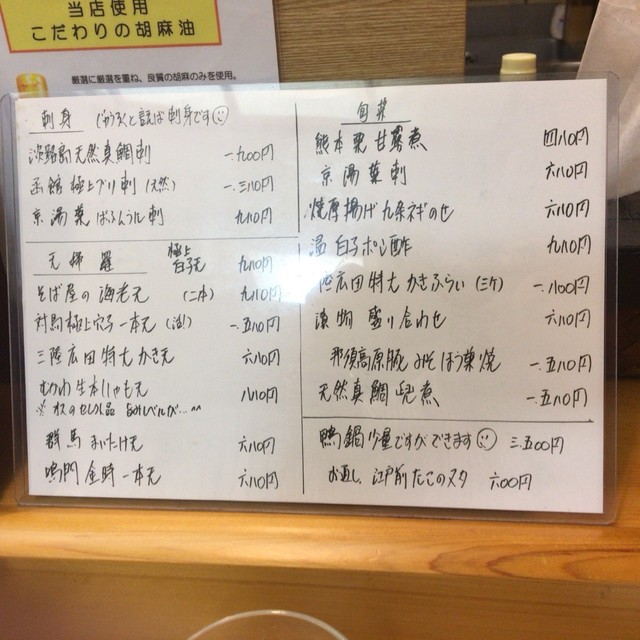 当店使用
こだわりの胡麻油
厳選に厳選を重ね、良質の胡麻のみを使用。
刺身 じゅうろくと言えば刺身です
淡路島天然真鯛刺 一.九〇〇円
函館極上ブリ刺(天然) 一.三八〇円
京湯葉 刺 九八〇円
天婦羅 極上白子天 九八〇円
そば屋の海老天 (二本) 九八〇円
対馬極上穴子一本天(活!) 一.五八〇円
三陸広田特大かき天 六八〇円
むかわ生本ししゃも天 八八〇円
群馬まいたけ天 六八〇円
鳴門金時一本天 六八〇円
旬菜
熊本栗甘露煮 四八〇円
京湯葉刺 六八〇円
焼厚揚げ九条ネギのせ 六八〇円
温白子ポン酢 九八〇円
陸広田特大かきふらい(三ケ) 一.八〇〇円
漬物盛り合わせ 六八〇円
那須高原豚みそほう葉焼 一.五八〇円
天然真鯛兜煮 一.五八〇円
鴨鍋少量ですができます 三.五〇〇円
お通し、江戸前たこのヌタ 六〇〇円